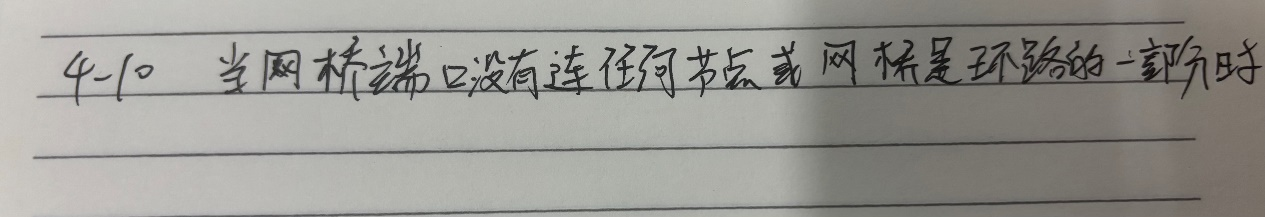 4-10 当网桥端口没有连任何节点或网桥是环路的一部分时